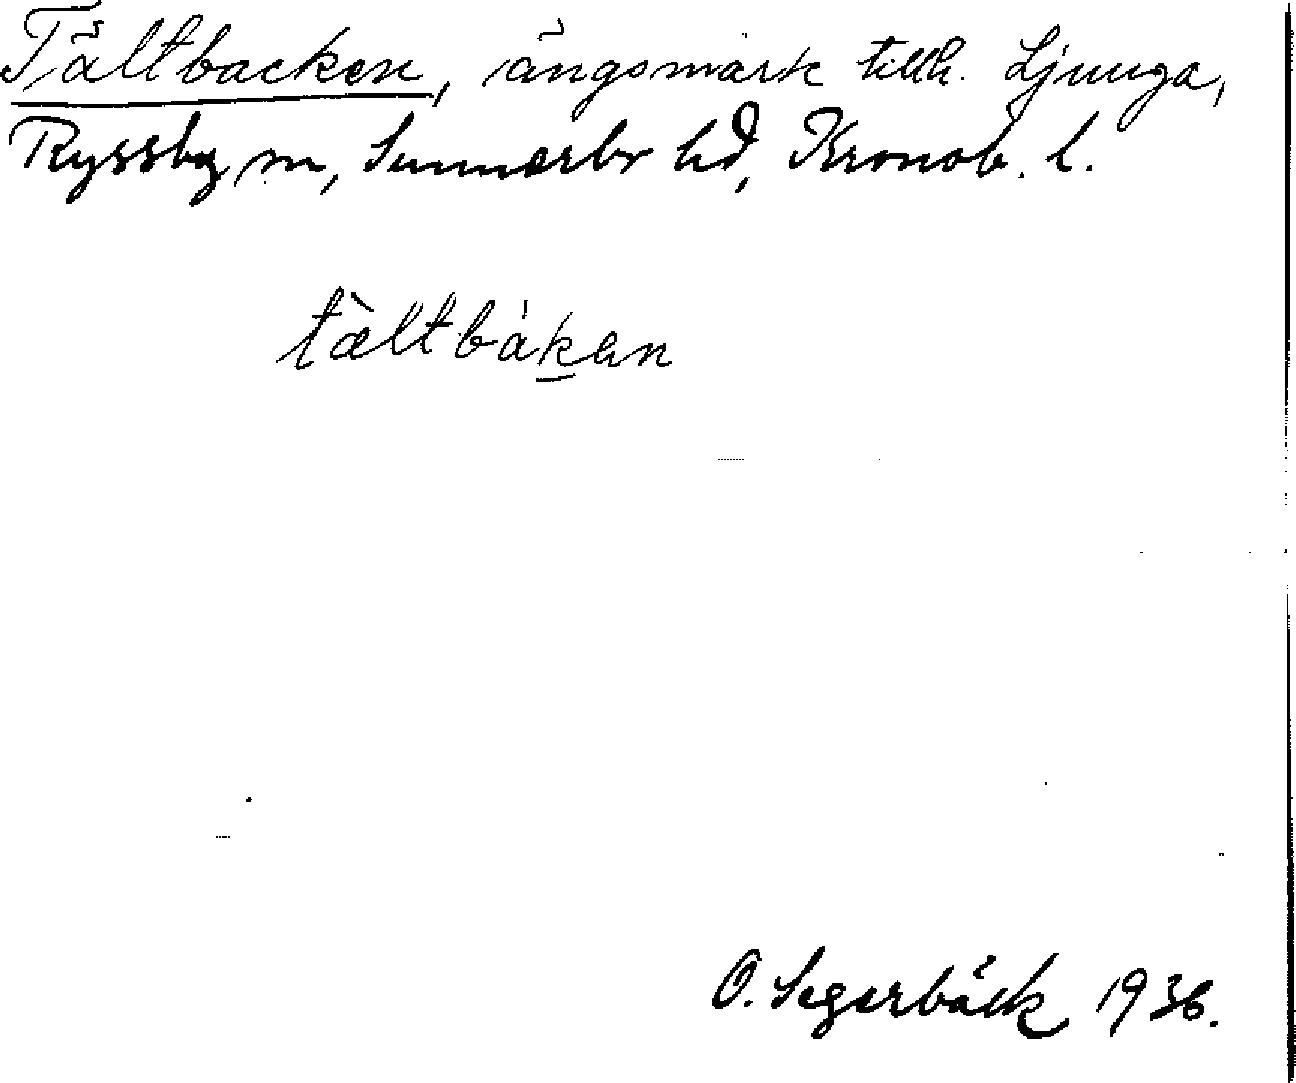 Tältbacken, ängsmark tillh. Ljunga,
Ryssby sn, Sunnerbo hd, Kronob. l.
tæ̀ltbàkan
O. Segerbäck 1936.